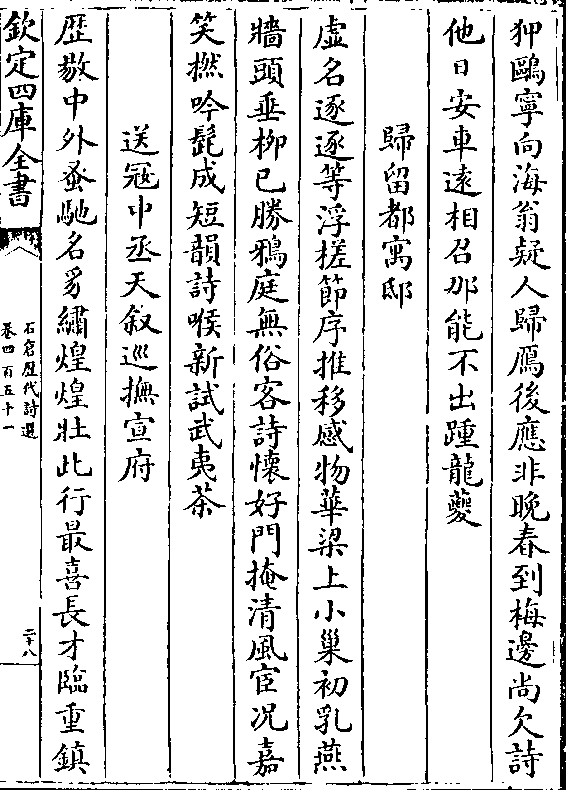 狎鷗寧向海翁疑人歸鴈後應非晚春到梅邊尚欠詩
他日安車遠相召那能不出踵龍夔
歸留都寓邸
虚名逐逐等浮槎節序推移感物華梁上小巢初乳燕
牆頭垂栁已勝鴉庭無俗客詩懷好門掩清風宦况嘉
笑撚吟髭成短韻詩喉新試武夷茶
送冦中丞天叙巡撫宣府
歴敭中外蚤馳名豸繡煌煌壮此行最喜長才臨重鎮
欽定四庫全書
石倉歴代詩選
卷四百五十一
二十八